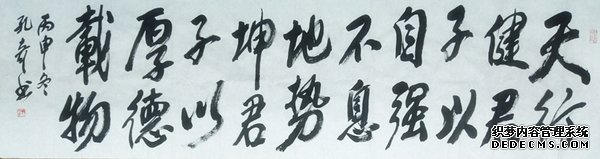 天行
健君
子以
自强
不息
地勢
坤君
子以
厚德
載物
丙申冬
织梦内容管理系统
DEDECMS.COM